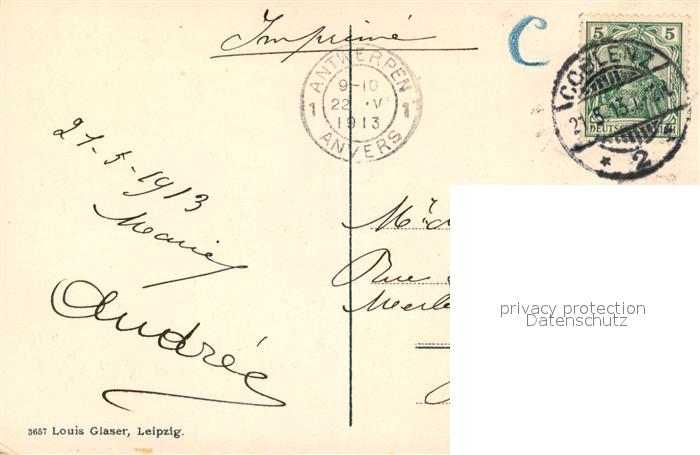 Imprimé
C
5 5
DEUTSCHES REICH
COBLENZ
21.5.13
* 2
ANTWERPEN
9-10
1 22 .V 1
1913
ANVERS
21-5-1913
Marie
Andrée
Rue
privacy protection
Datenschutz
3657 Louis Glaser, Leipzig.